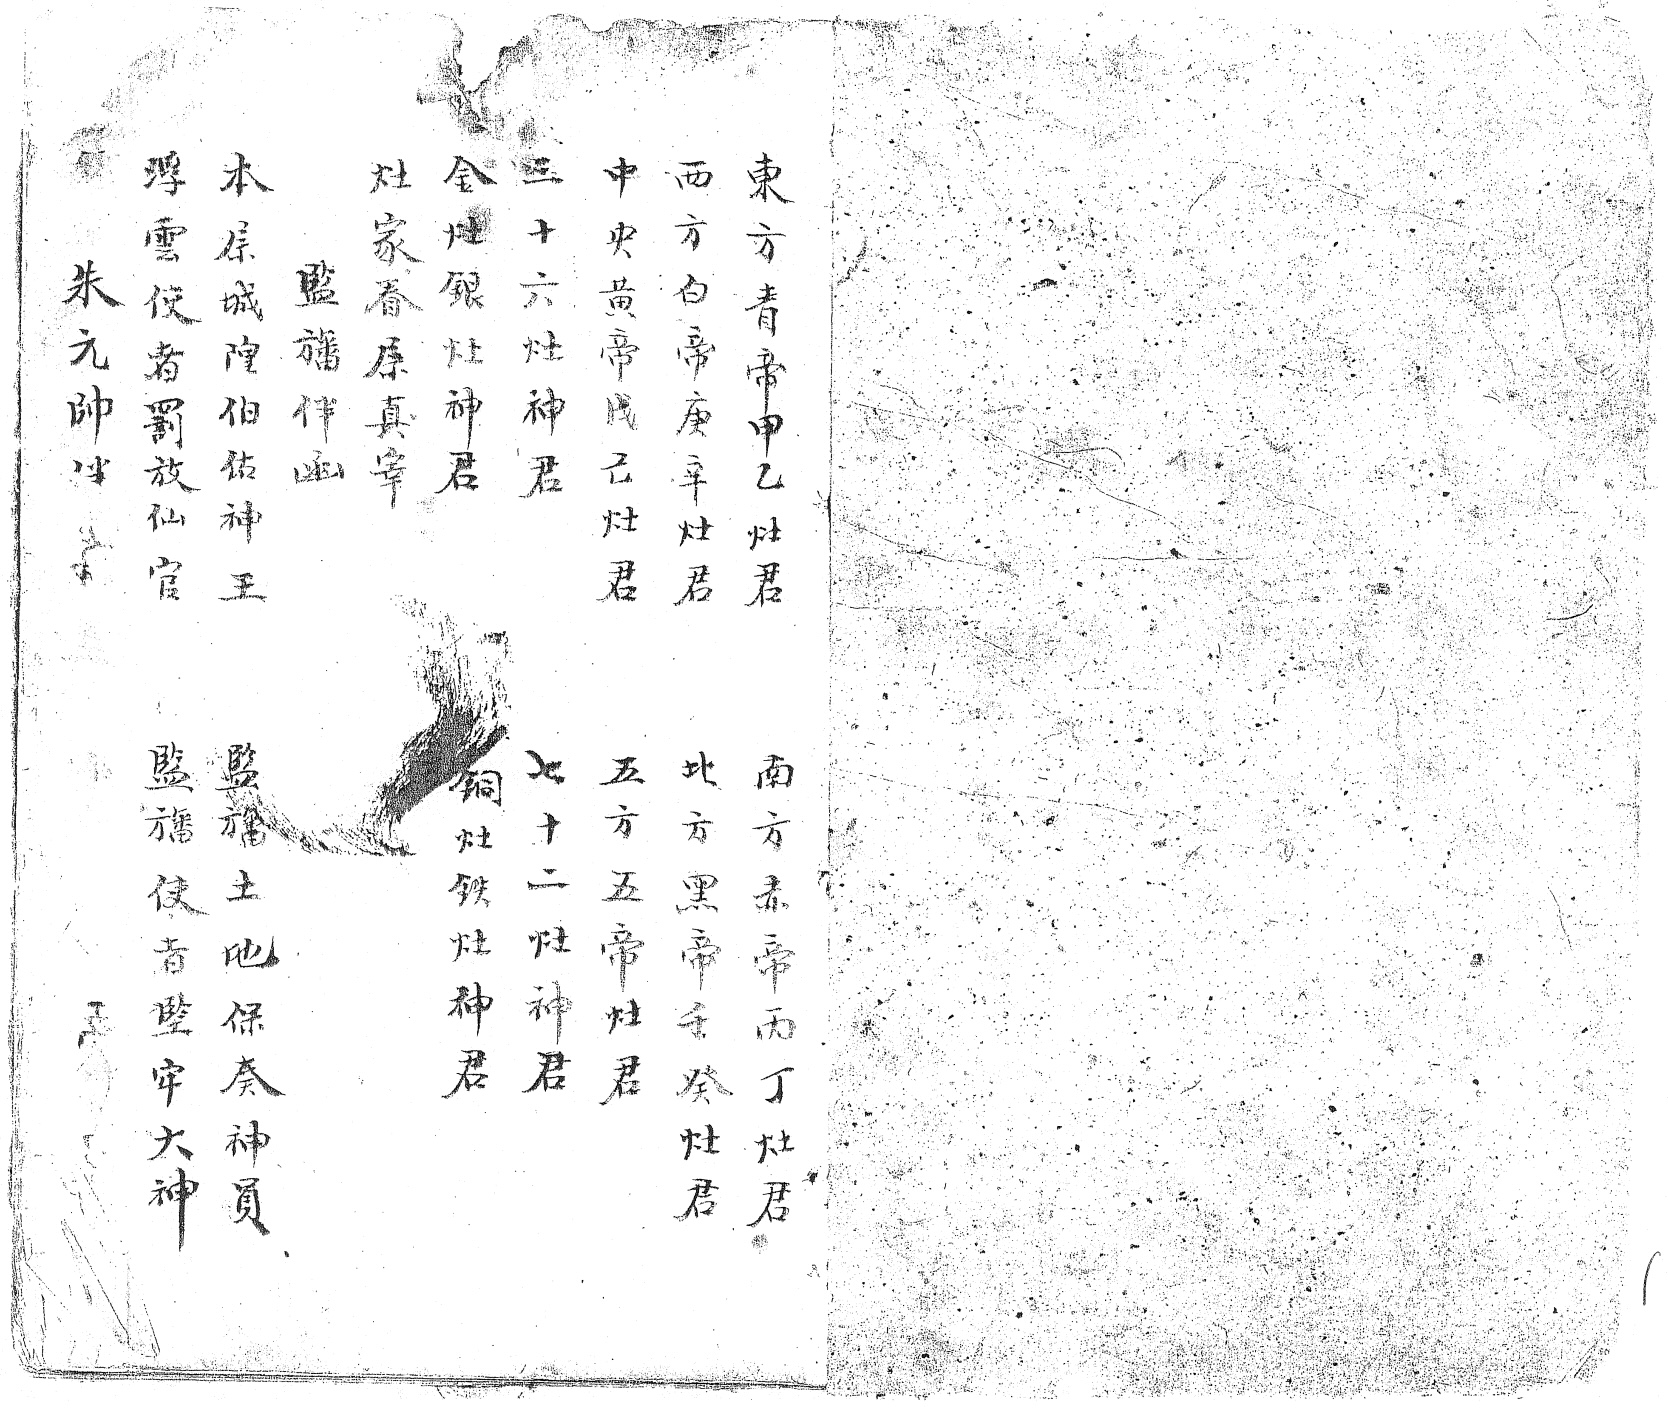 東方青帝甲乙灶君 南方赤帝丙丁灶君
西方白帝庚辛灶君 北方黑帝壬癸灶君
中央黃帝戊己灶君 五方五帝灶君
三十六灶神君 七十二灶神君
金灶銀灶神君 銅灶鉄灶神君
灶家眷属真宰
監旛伴函
本属城隍伯佑神王 監旛土地保奏神員
浮雲使者罰放仙官 監旛使者監牢大神
朱元帥